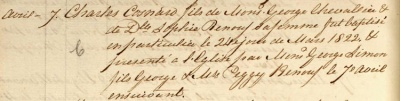 Avril - 7. Charles Cosnard fils de Monsr. George Chevallier &
de Dlle. Sophie Renouf sa femme fut baptisé
en particulier le 24 jour de Mars 1822. &
6 presenté à l'Eglise par Monsr. George Simon
fils George & Mrs. Peggy Renouf le 7e. avril
ensuivant.